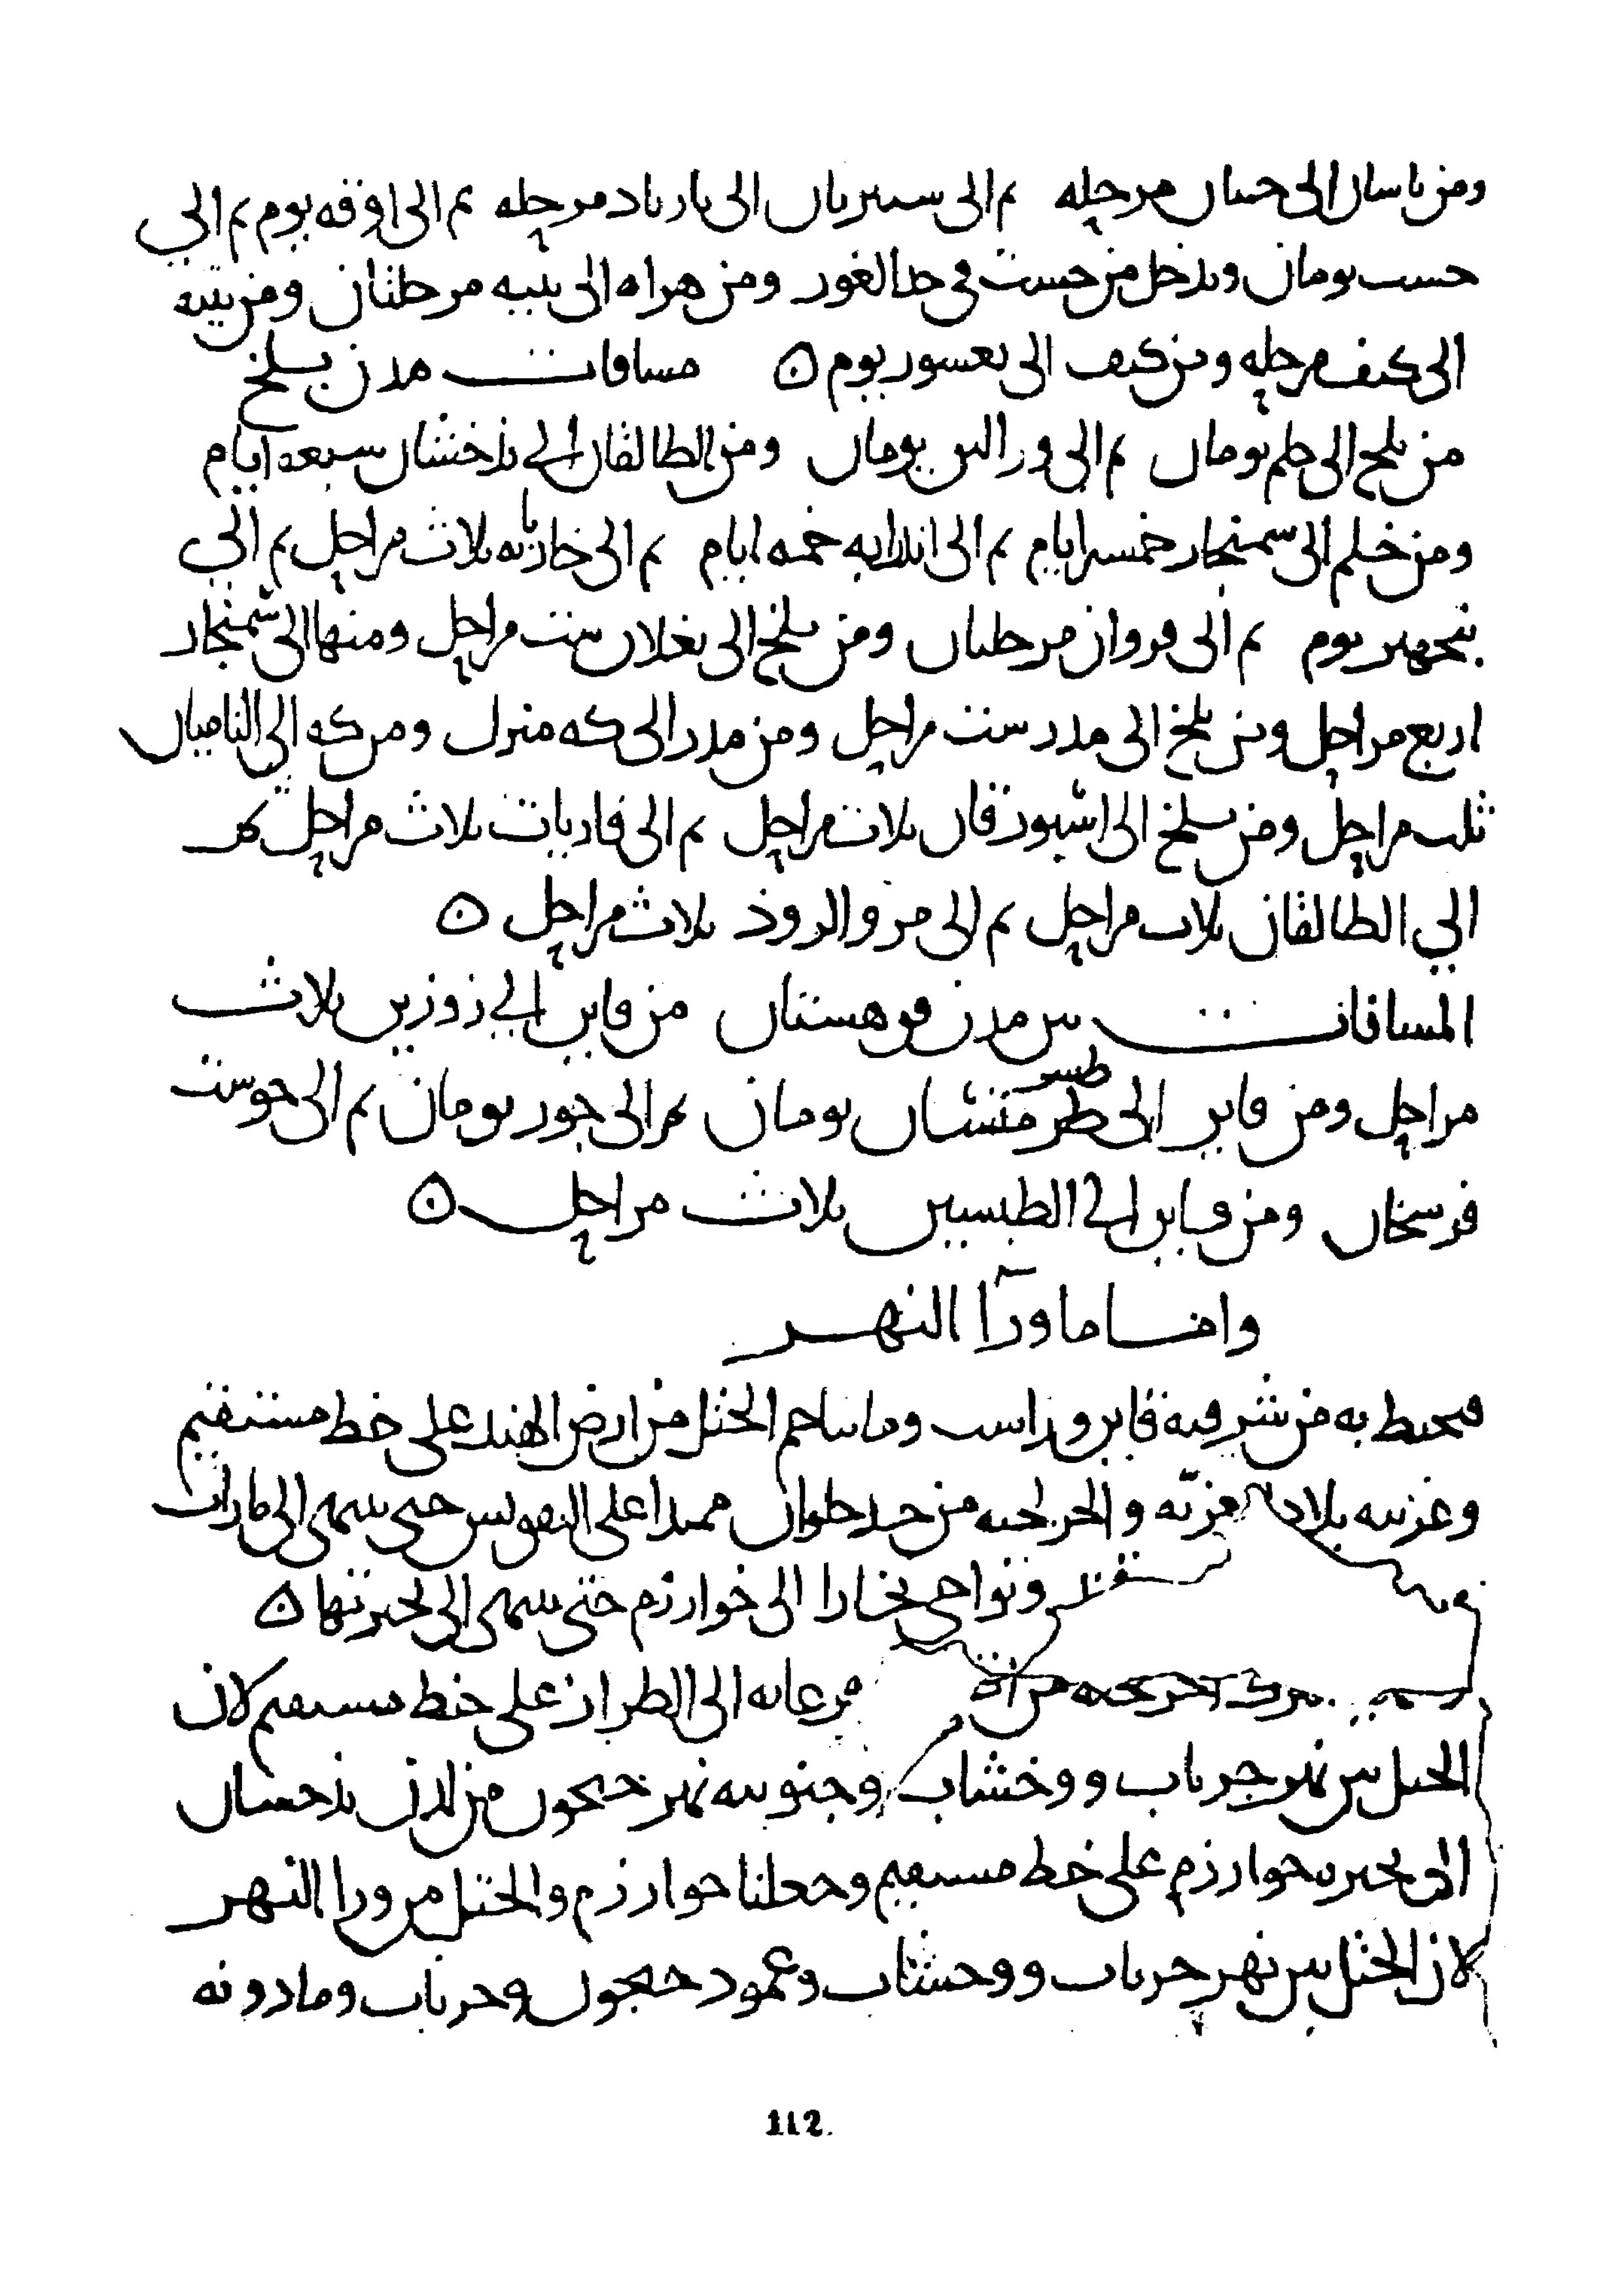 ومن باسان الى حسان مرحله ثم الى سسريان الى مارباد مرحله ثم الى اوقه يوم ثم الي
حست يومان ويدخل من حست في حد الغور ومن هراه الى ببنه مرحلتان ومن ببنه
الى كيف مرحله ومن كيف الى بعسور يوم ٥ مسافات مدن بلخ
من بلخ الى خلم يومان ثم الى ورالين يومان ومن الطالقان الى بذخشان سبعه ايام
ومن خلم الى سمنجار خمسه ايام ثم الى اندرابه خمسه ايام ثم الى جاربايه ثلاث مراحل ثم الي
بنجهير يوم ثم الى فروان مرحلتان ومن بلخ الى بغلان ست مراحل ومنها الى سمنجار
اربع مراحل ومن بلخ الى مدر ست مراحل ومن مدر الى كه منزل ومن كه الى الباميان
ثلث مراحل ومن بلخ الى اشبورقان ثلاث مراحل ثم الى فارياب ثلاث مراحل ثم
الي الطالقان ثلاث مراحل ثم الى مرو الروذ ثلاث مراحل ٥
المسافات بين مدن قوهستان من قاين الي زوزن ثلاث
مراحل ومن قاين الى طبس يومان ثم الى جور يومان ثم الى خوست
فرسخان ومن قاين الى الطبسين ثلاث مراحل ٥
واما ما ورآ النهر
فيحيط به من شرقيه فاير وراست وما يتاخم الختل من ارض الهند على خط مستقيم
وغربيه بلاد غزيه والخرلجيه من حد طوان ممتدا على التقويس حتى ينتهي الى فاراب
ونواحي بخارا الى خوارزم حتى ينتهي الى بحيرتها ٥
فرغانه الى الطراز على خط مستقيم لان
الختل بين نهر جرياب ووخشاب وجنوبيه نهر جيحون من لدن بذخشان
الى بحيره خوارزم على خط مستقيم وجعلنا خوارزم والختل من ورا النهر
لان الختل بين نهر جرياب ووخشاب وعمود جيحون وجرياب وما دونه
112